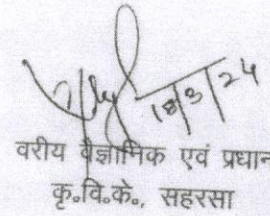 18/3/24
वरीय वैज्ञानिक एवं प्रधान
कृ०वि०के०, सहरसा